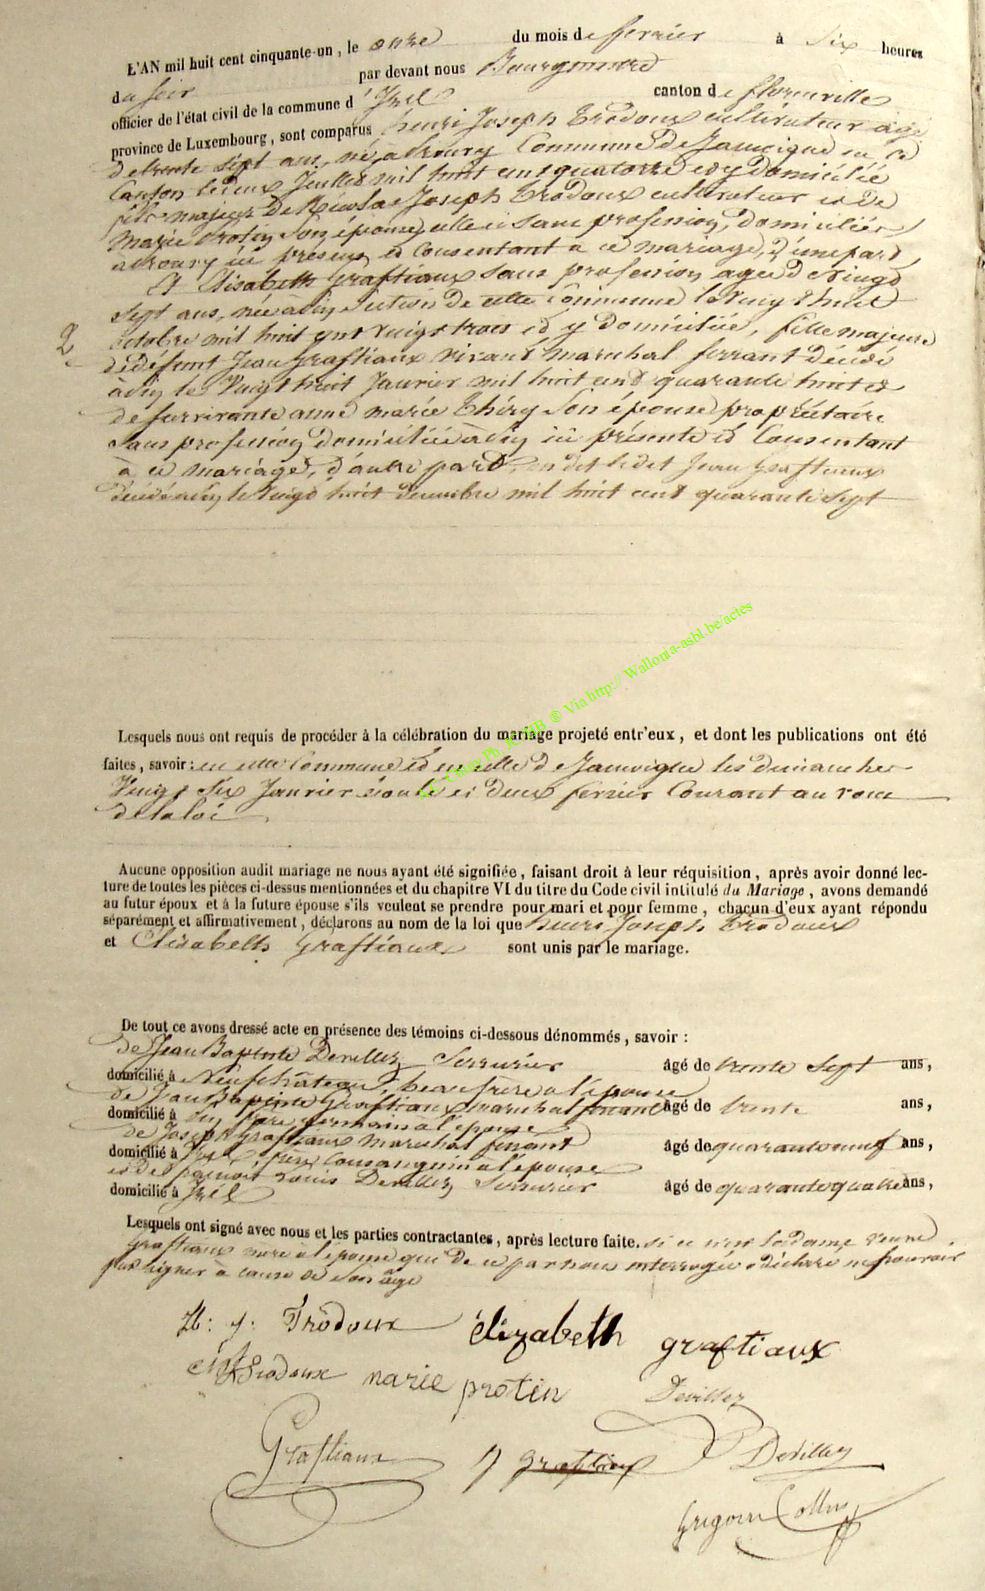 L'AN mil huit cent cinquante-un, le onze du mois de fevrier à six heures
du soir par devant nous Bourgmestre
officier de l'état civil de la commune d'Izel canton de florenville
province de Luxembourg, sont comparus henri Joseph Trodoux cultivateur agé
de trente sept ans, né à Commune De Jamoigne en ce
Canton le deux Juillet mil huit cent quatorze et y domicilié
fils majeur De Nicolas Joseph Trodoux cultivateur et de
Marie Protin son épouse, elle ci sans profession, domiciliés
à ici présens et consentant a ce mariage, d'une part
Et Elisabeth Graftiaux sans profession agée de vingt
sept ans, née à section de cette Commune le vingt huit
octobre mil huit cent vingt trois et y domiciliée, fille majeure
2 de défunt Jean Graftiaux vivant marechal ferrant décédé
à le vingt huit Janvier mil huit cent quarante huit et
de survivante anne marie Thiry son épouse propriétaire
sans profession domiciliée à ici présente et Consentant
à ce mariage, d'autre part, on dit ledit Jean Graftiaux
décédé le vingt huit decembre mil huit cent quarante sept
Le Ph. B ® Via http:// Wallonia-asbl.be/actes
Lesquels nous ont requis de procéder à la célébration du mariage projeté entr'eux, et dont les publications ont été
faites, savoir: en cette Commune et en celle de Jamoigne les dimanches
Vingt Six Janvier écoulé et deux fevrier Courant au voeu
de la loi
Aucune opposition audit mariage ne nous ayant été signifiée, faisant droit à leur réquisition, après avoir donné lec-
ture de toutes les pièces ci-dessus mentionnées et du chapitre VI du titre du Code civil intitulé du Mariage, avons demandé
au futur époux et à la future épouse s'ils veulent se prendre pour mari et pour femme, chacun d'eux ayant répondu
séparément et affirmativement, déclarons au nom de la loi que henri Joseph Trodoux
et Elisabeth Graftiaux sont unis par le mariage.
De tout ce avons dressé acte en présence des témoins ci-dessous dénommés, savoir:
de Jean Baptiste Devillez Serrurier âgé de trente sept ans,
domicilié à Neufchâteau, beau frère a l'épouse
de Jean Baptiste Graftiaux marechal ferrant âgé de trente ans,
domicilié à frère germain a l'épouse
de Joseph Graftiaux marechal ferrant âgé de quarante neuf ans,
domicilié à Izel, frère consanguin à l'épouse
et de Louis Devillez Serrurier âgé de quarante quatre ans,
domicilié à Izel
Lesquels ont signé avec nous et les parties contractantes, après lecture faite. si ce n'est la dame veuve
Graftiaux mere à l'épouse qui de ce par nous interrogée a déclaré ne pouvoir
pas signer à cause de son âge
H: J: Trodoux élizabeth graftiaux
Trodoux marie protin Devillez
Graftiaux J graftiaux Devillez
Grégoire Collin